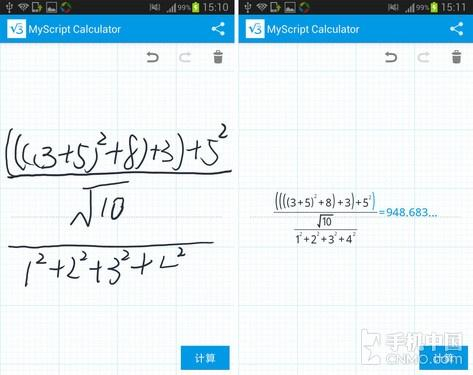 15:10
MyScript Calculator
((((3+5)²+8)+3)+5²
√10
1²+2²+3²+4²
计算
99% 15:11
MyScript Calculator
((((3+5)²+8)+3)+5²)
√10
1²+2²+3²+4²
=948.683...
计算
手机中国
CNMO.com